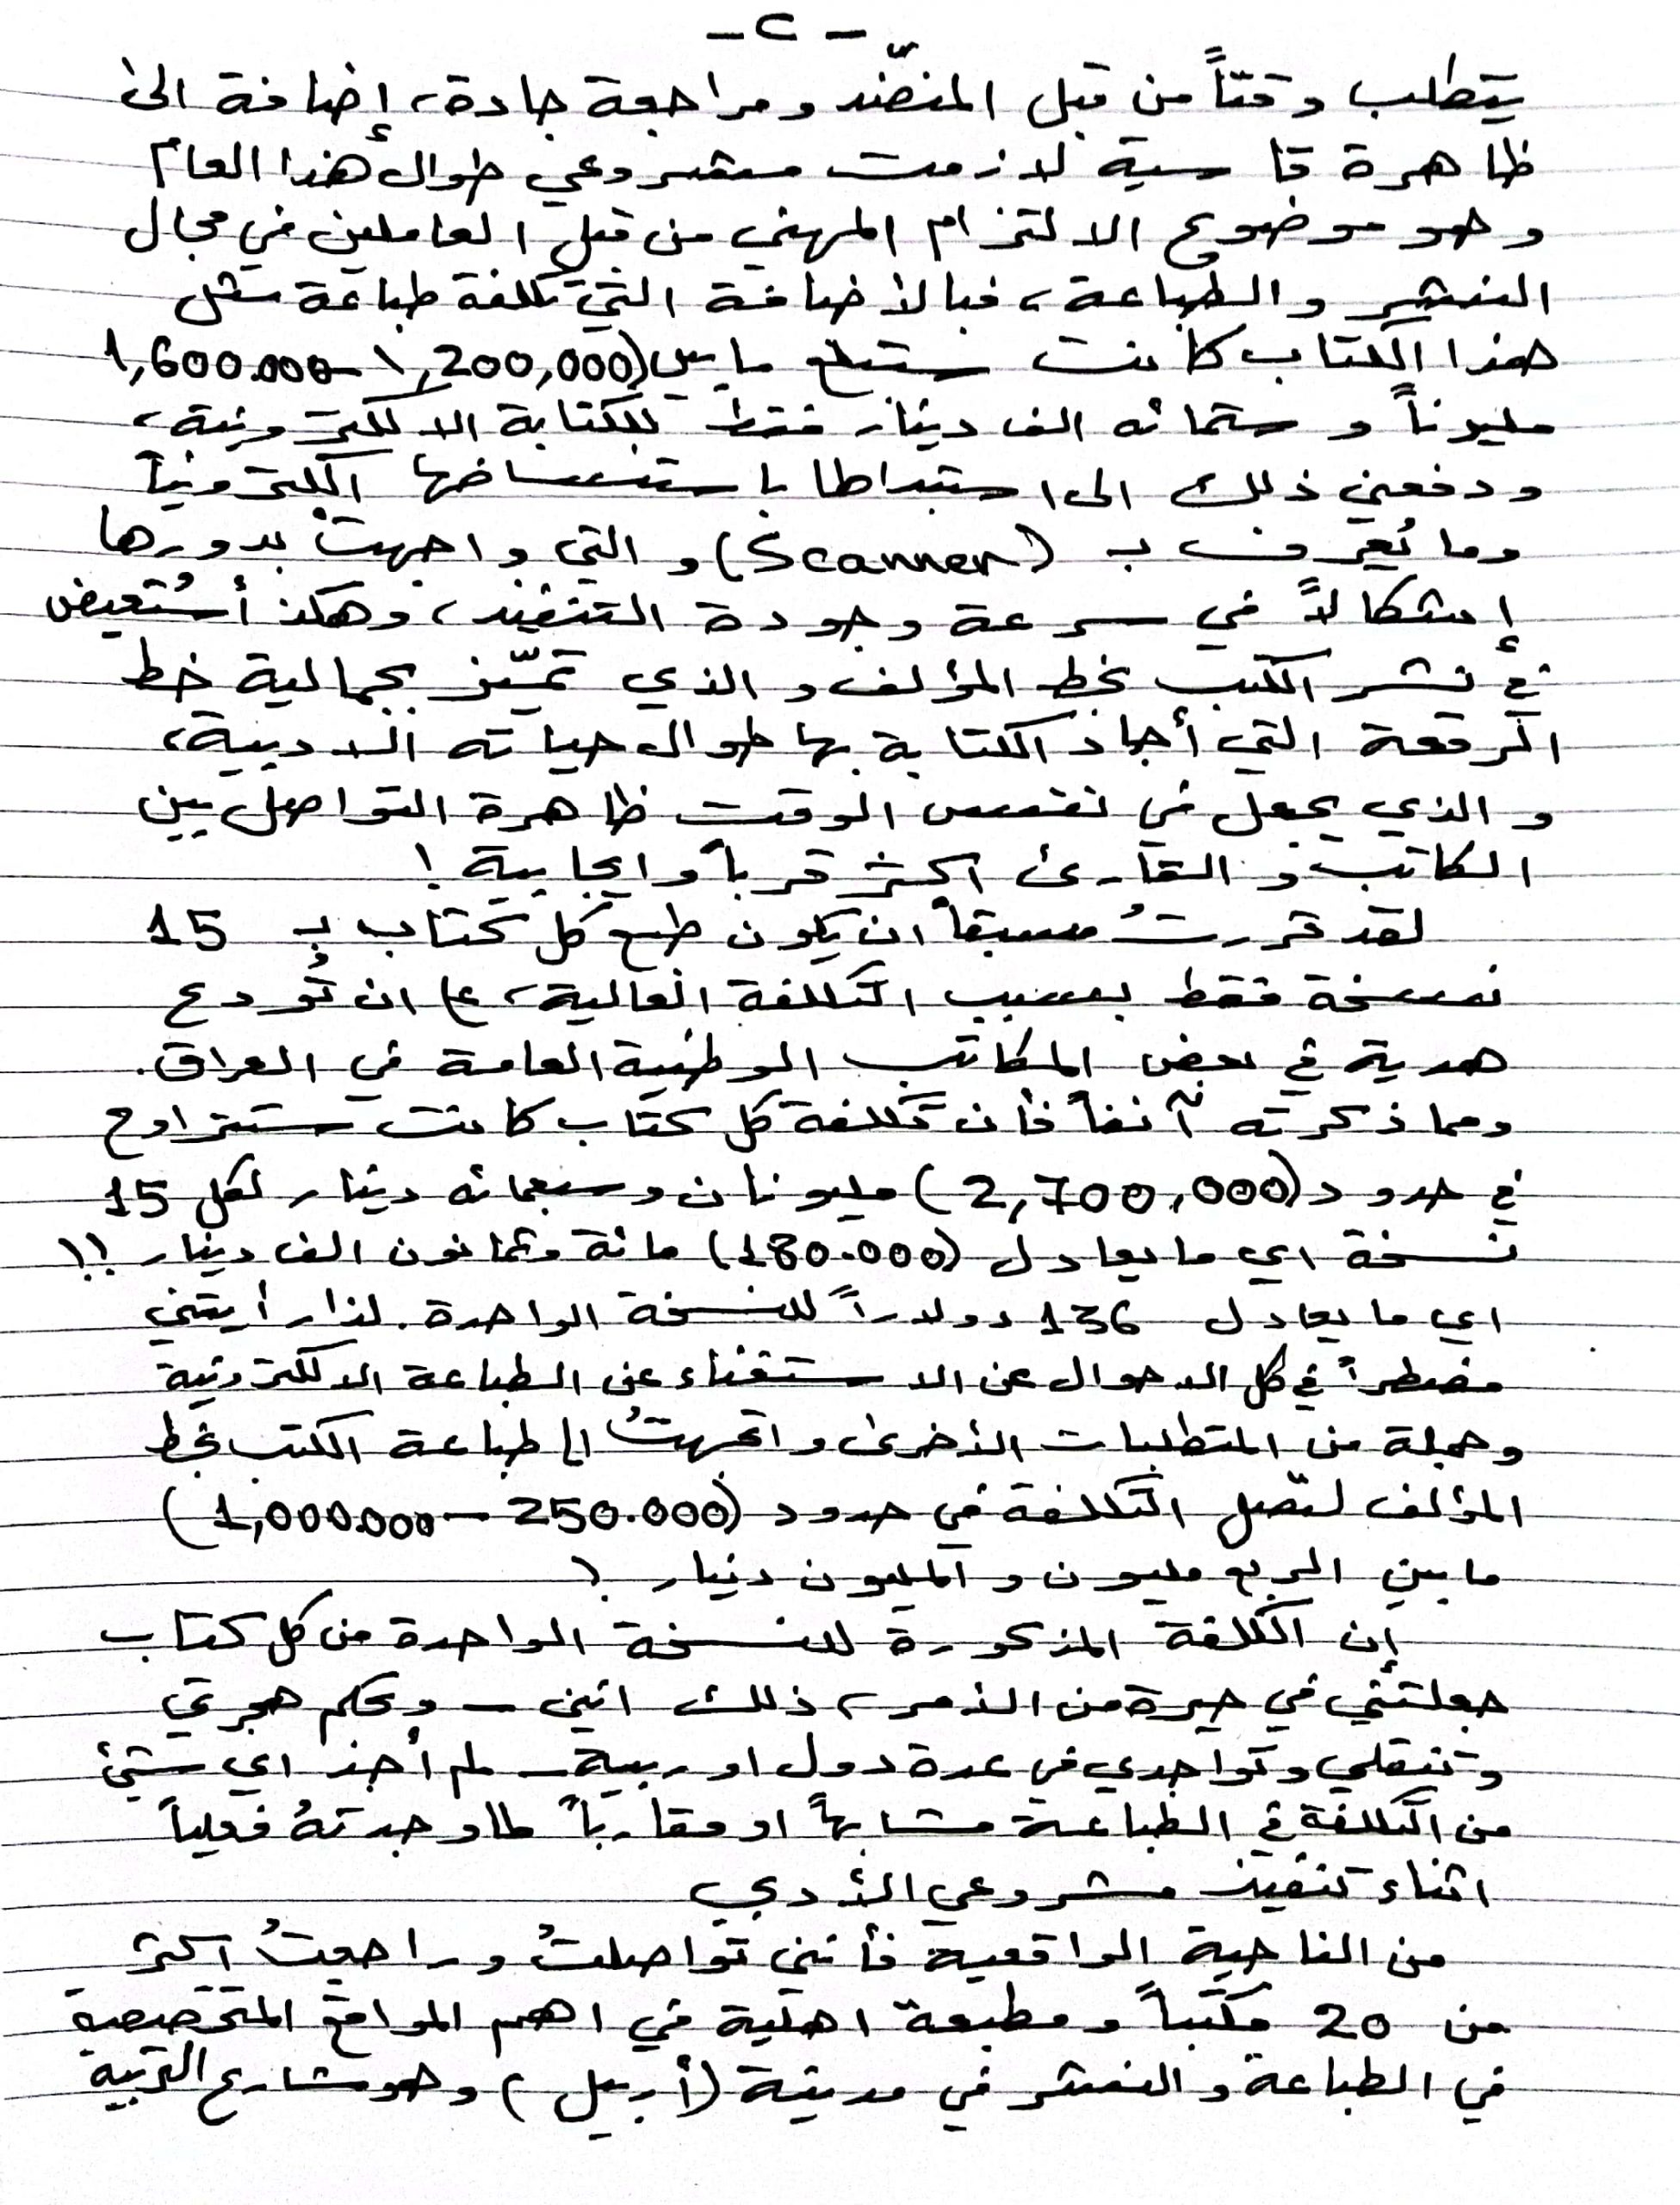 - ٢ -
يتطلب وقتاً من قبل المنضّد ومراجعة جادة، إضافة الى
ظاهرة قاسية لازمت مشروعي طوال هذا العام
وهو موضوع الالتزام المهني من قبل العاملين في مجال
النشر والطباعة، فبالإضافة التي تكلفة طباعة مثل
هذا الكتاب كانت ستبلغ مابين (1,200,000 - 1,600.000
مليوناً وستمائه الف دينار فقط للكتابة الالكترونية،
ودفعني ذلك الى استبداطا باستنساخها الكترونياً
وما تُعرف بـ (Scanner) والتي واجهت بدورها
إشكالاً في سرعة وجودة التنفيذ، وهكذ أستُعيض
في نشر الكتب بخط المؤلف والذي تميّز بجمالية خط
الرقعة التي أجاد الكتابة بها طوال حياته الادبية،
والذي يجعل في نفس الوقت ظاهرة التواصل بين
الكاتب والقارئ اكثر قرباً وايجابية !
لقد قررتُ مسبقاً ان يكون طبع كل كتاب بـ 15
نسخة فقط بسبب التكلفة العالية، على ان تُودع
هدية في بعض المكاتب الوطنية العامة في العراق.
ومما ذكرته آنفاً فأن تكلفة كل كتاب كانت ستتراوح
في حدود (2,700,000) مليونان وسبعمائه دينار لكل 15
نسخة اي ما يعادل (180.000) مائة وثمانون الف دينار !!
اي ما يعادل 136 دولاراً للنسخة الواحدة. لذا رأيتني
مضطراً في كل الاحوال عن الاستغناء عن الطباعة الالكترونية
وجملة من المتطلبات الأخرى واتجهتُ الى طباعة الكتب بخط
المؤلف لتصل التكلفة في حدود (250.000 - 1,000.000)
ما بين الربع مليون والمليون دينار !
إن الكلفة المذكورة للنسخة الواحدة من كل كتاب
جعلتني في حيرة من الأمر، ذلك انني - وبحكم هجرتي
وتنقلي وتواجدي في عدة دول اوربية - لم أجد اي شئ
من التكلفة في الطباعة مشابهاً او مقارباً لما وجدتهُ فعلياً
اثناء تنفيذ مشروعي الأدبي
من الناحية الواقعية فأنني تواصلتُ وراجعتُ اكثر
من 20 مكتباً ومطبعة اهلية في اهم المواقع المتخصصة
في الطباعة والنشر في مدينة (أربيل) وهو شارع التربية